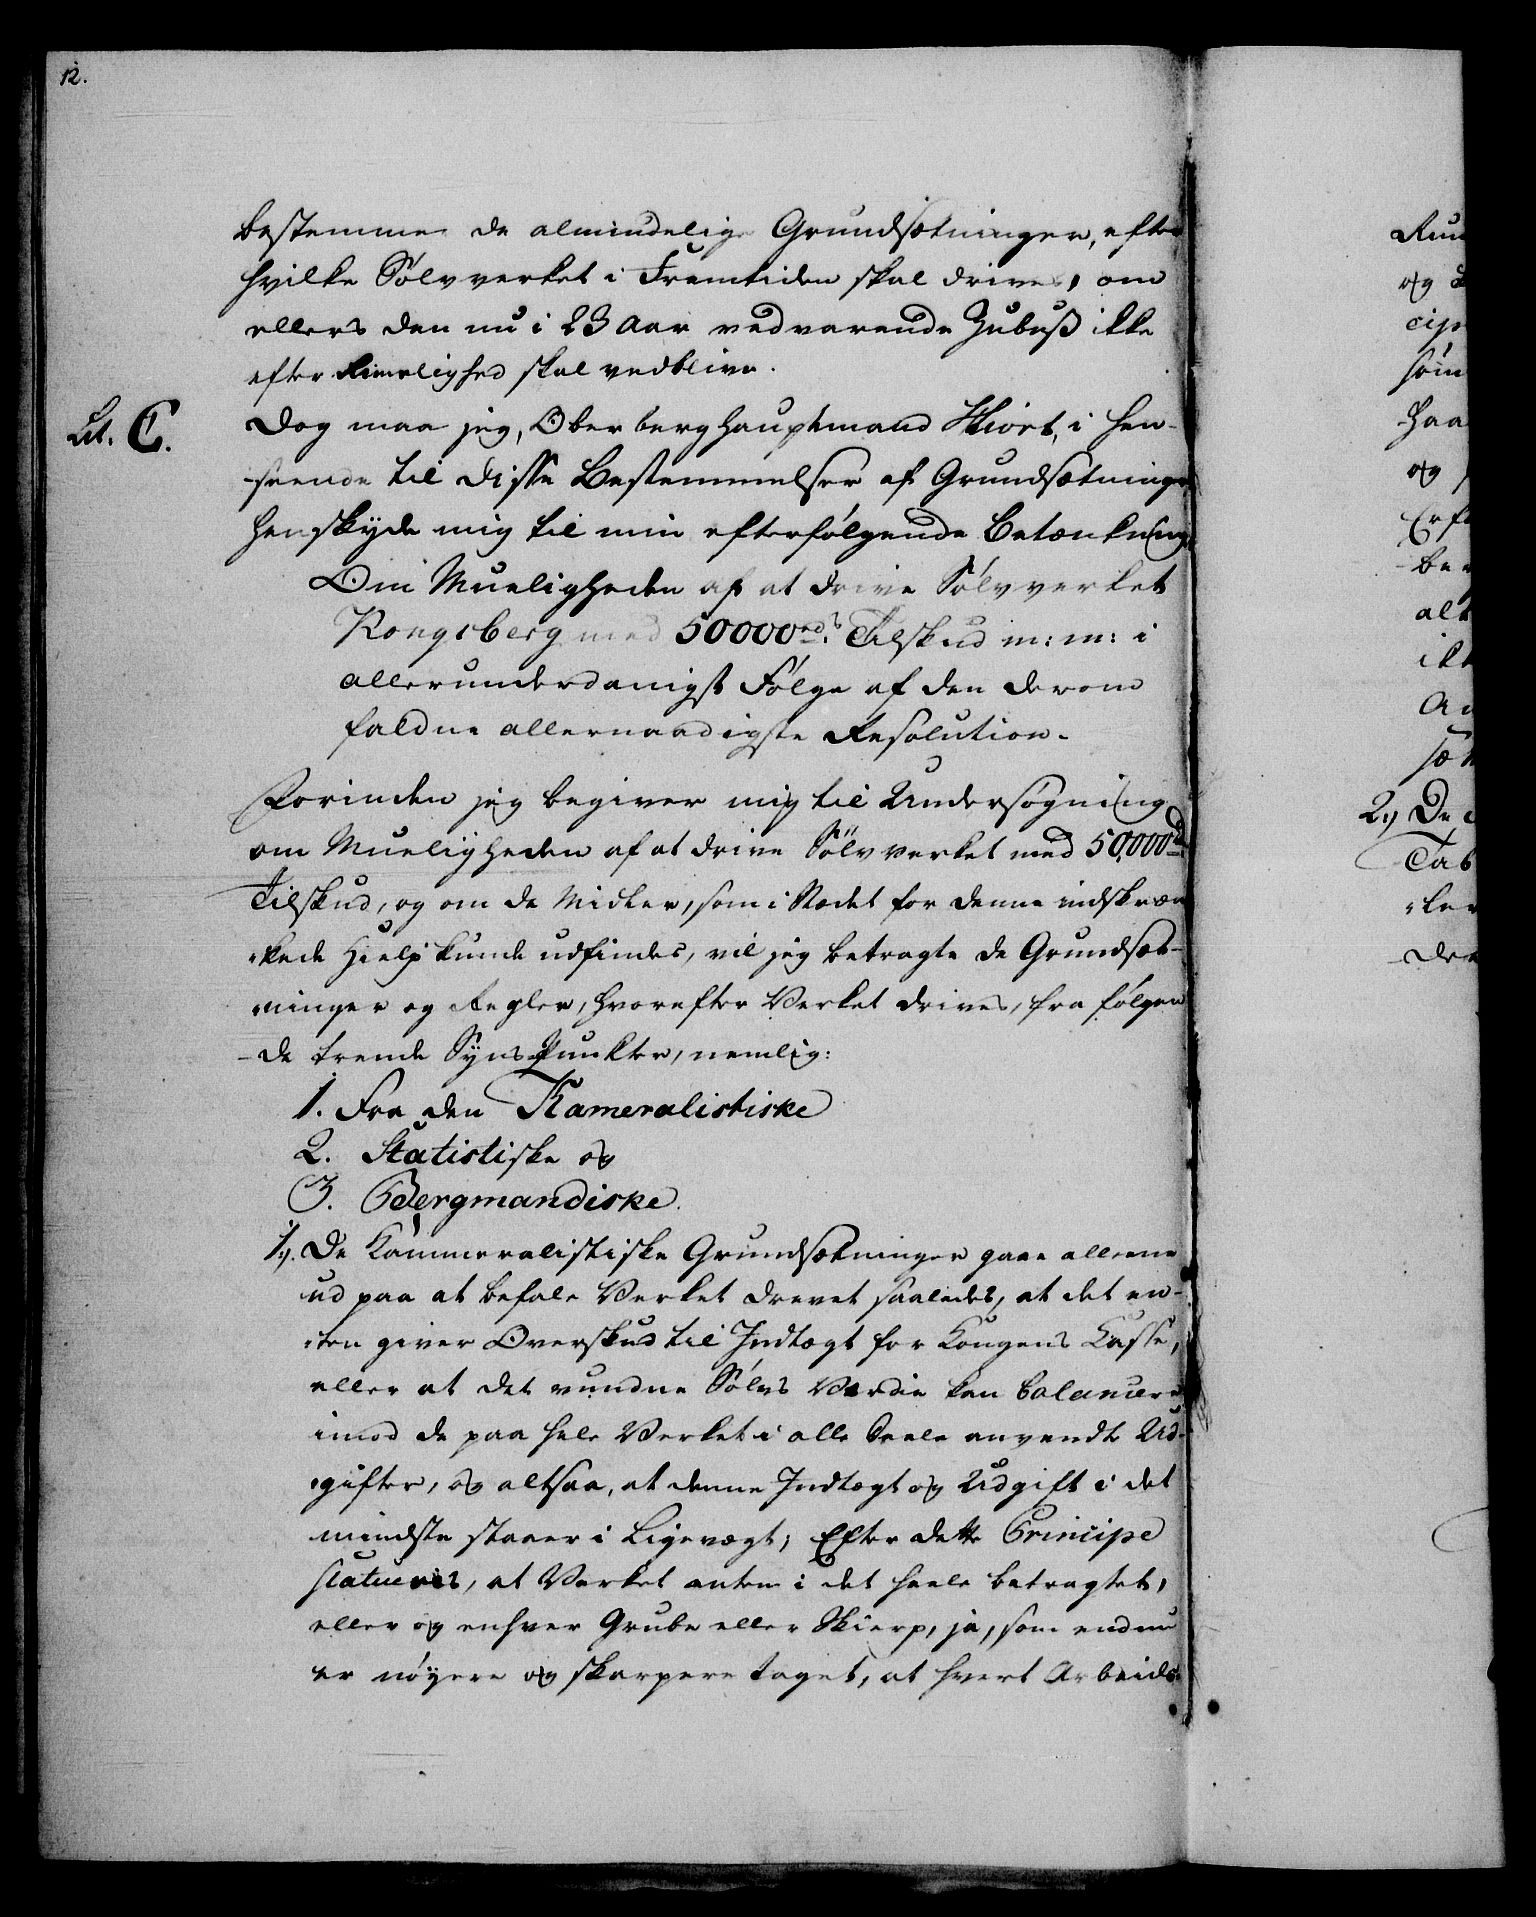 12.
bestemme de almindelige Grundsætninger, efter
hvilke Sølvverket i Fremtiden skal drives, om
ellers den nu i 23 Aar vedvarende Zubuß ikke
efter Rimelighed skal vedblive.
Lit. C.
Dog maa jeg, Oberberghauptmand Hiort, i Hen-
seende til disse Bestemmelser af Grundsætninger
henskyde mig til min efterfølgende Betænkning
Om Mueligheden af at drive Sølvverket
Kongsberg med 50000 rd.s Tilskud m: m: i
allerunderdanigst Følge af den derom
faldne allernaadigste Resolution.
Forinden jeg begiver mig til Undersøgning
om Mueligheden af at drive Sölvverket med 50,000 rd
Tilskud, og om de Midler, som i Stædet for denne indskræn
-kede Hielp kunde udfindes, vil jeg betragte de Grundsæt-
-ninger og Regler, hvorefter Verket drives, fra følgen
-de trende Syns Punkter, nemlig:
1. Fra den Kameralistiske
2. Statistiske og
3. Bergmandiske.
1.) De Kammeralistiske Grundsætninger gaae alleene
ud paa at befale Verket drevet saaledes, at det en-
-ten giver Overskud til Indtægt for Kongens Kasse,
eller at det vundne Sølvs Værdie kan balancere
imod de paa hele Verket i alle Deele anvendte Ud-
-gifter, og altsaa, at denne Indtægt og Udgift i det
mindste staaer i Ligevægt; Efter dette Principe
statueres, at Verket enten i det heele betragtet,
eller og enhver Grube eller Skierp, ja, som endnu
er nøyere og skarpere taget, at hvert Arbeids-
og
cip
som
haa
og
ber
alt
ikk
2.) De
Tab